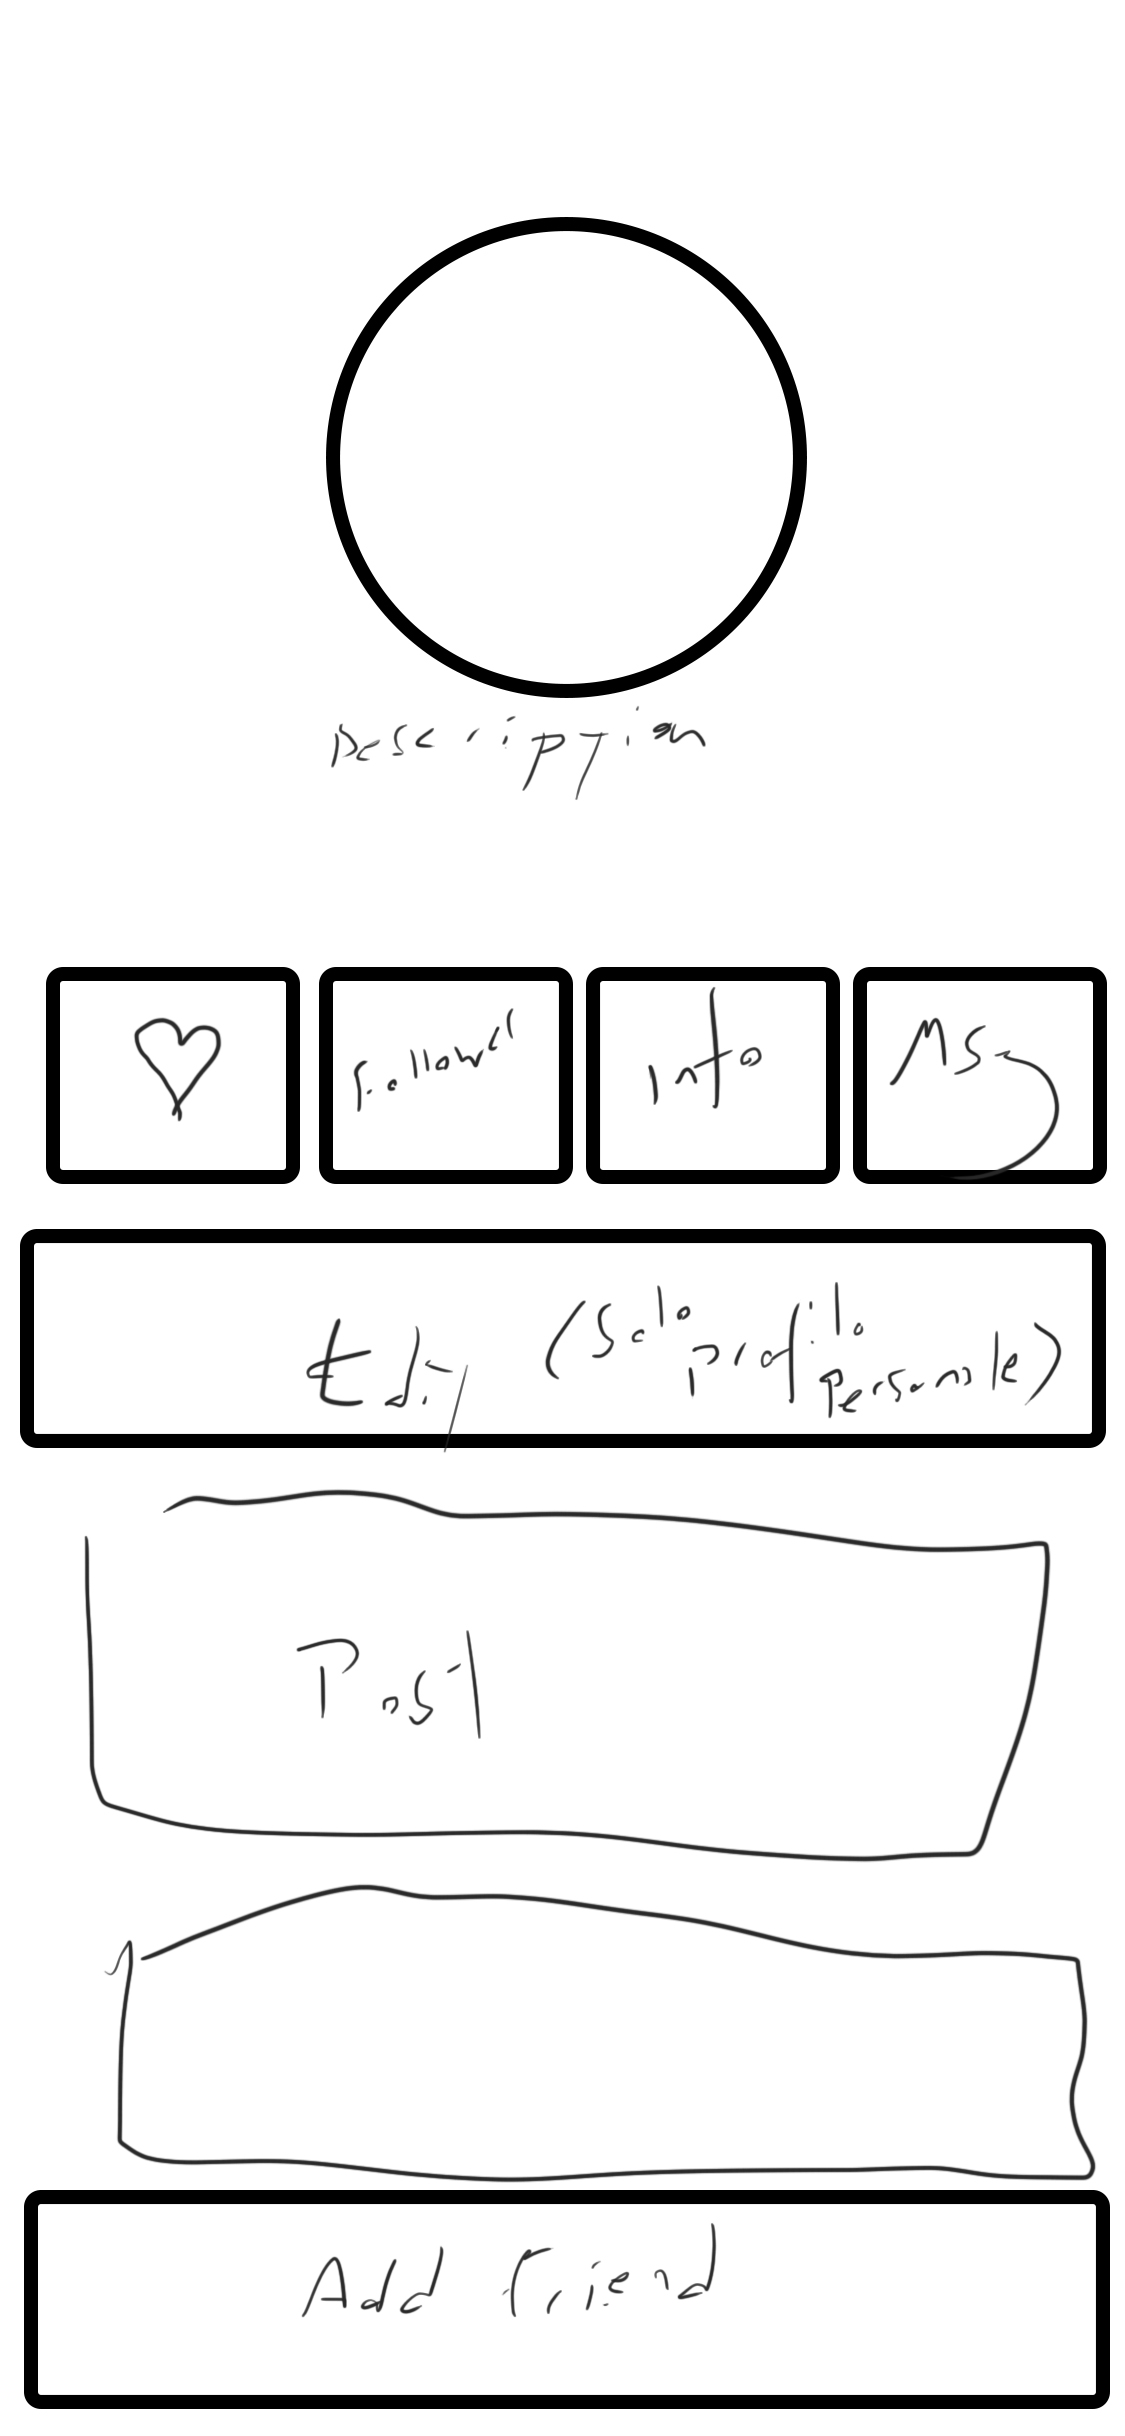 Description
Follower
Info
Msg
Edit (Solo profilo personale)
Post
Add Friend